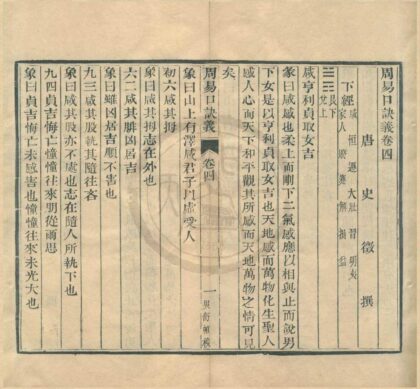 周易口訣義卷四
唐 史徵 撰
下經 咸 恒 遯 大壯 晉 明夷
家人 睽 蹇 解 損 益
䷞ 艮下
兌上
咸亨利貞取女吉
彖曰咸感也柔上而剛下二氣感應以相與止而說男
下女是以亨利貞取女吉也天地感而萬物化生聖人
感人心而天下和平觀其所感而天地萬物之情可見
矣
周易口訣義 卷四 一
象曰山上有澤咸君子以虛受人
初六咸其拇
象曰咸其拇志在外也
六二咸其腓凶居吉
象曰雖凶居吉順不害也
九三咸其股執其隨往吝
象曰咸其股亦不處也志在隨人所執下也
九四貞吉悔亡憧憧往來朋從爾思
象曰貞吉悔亡未感害也憧憧往來未光大也